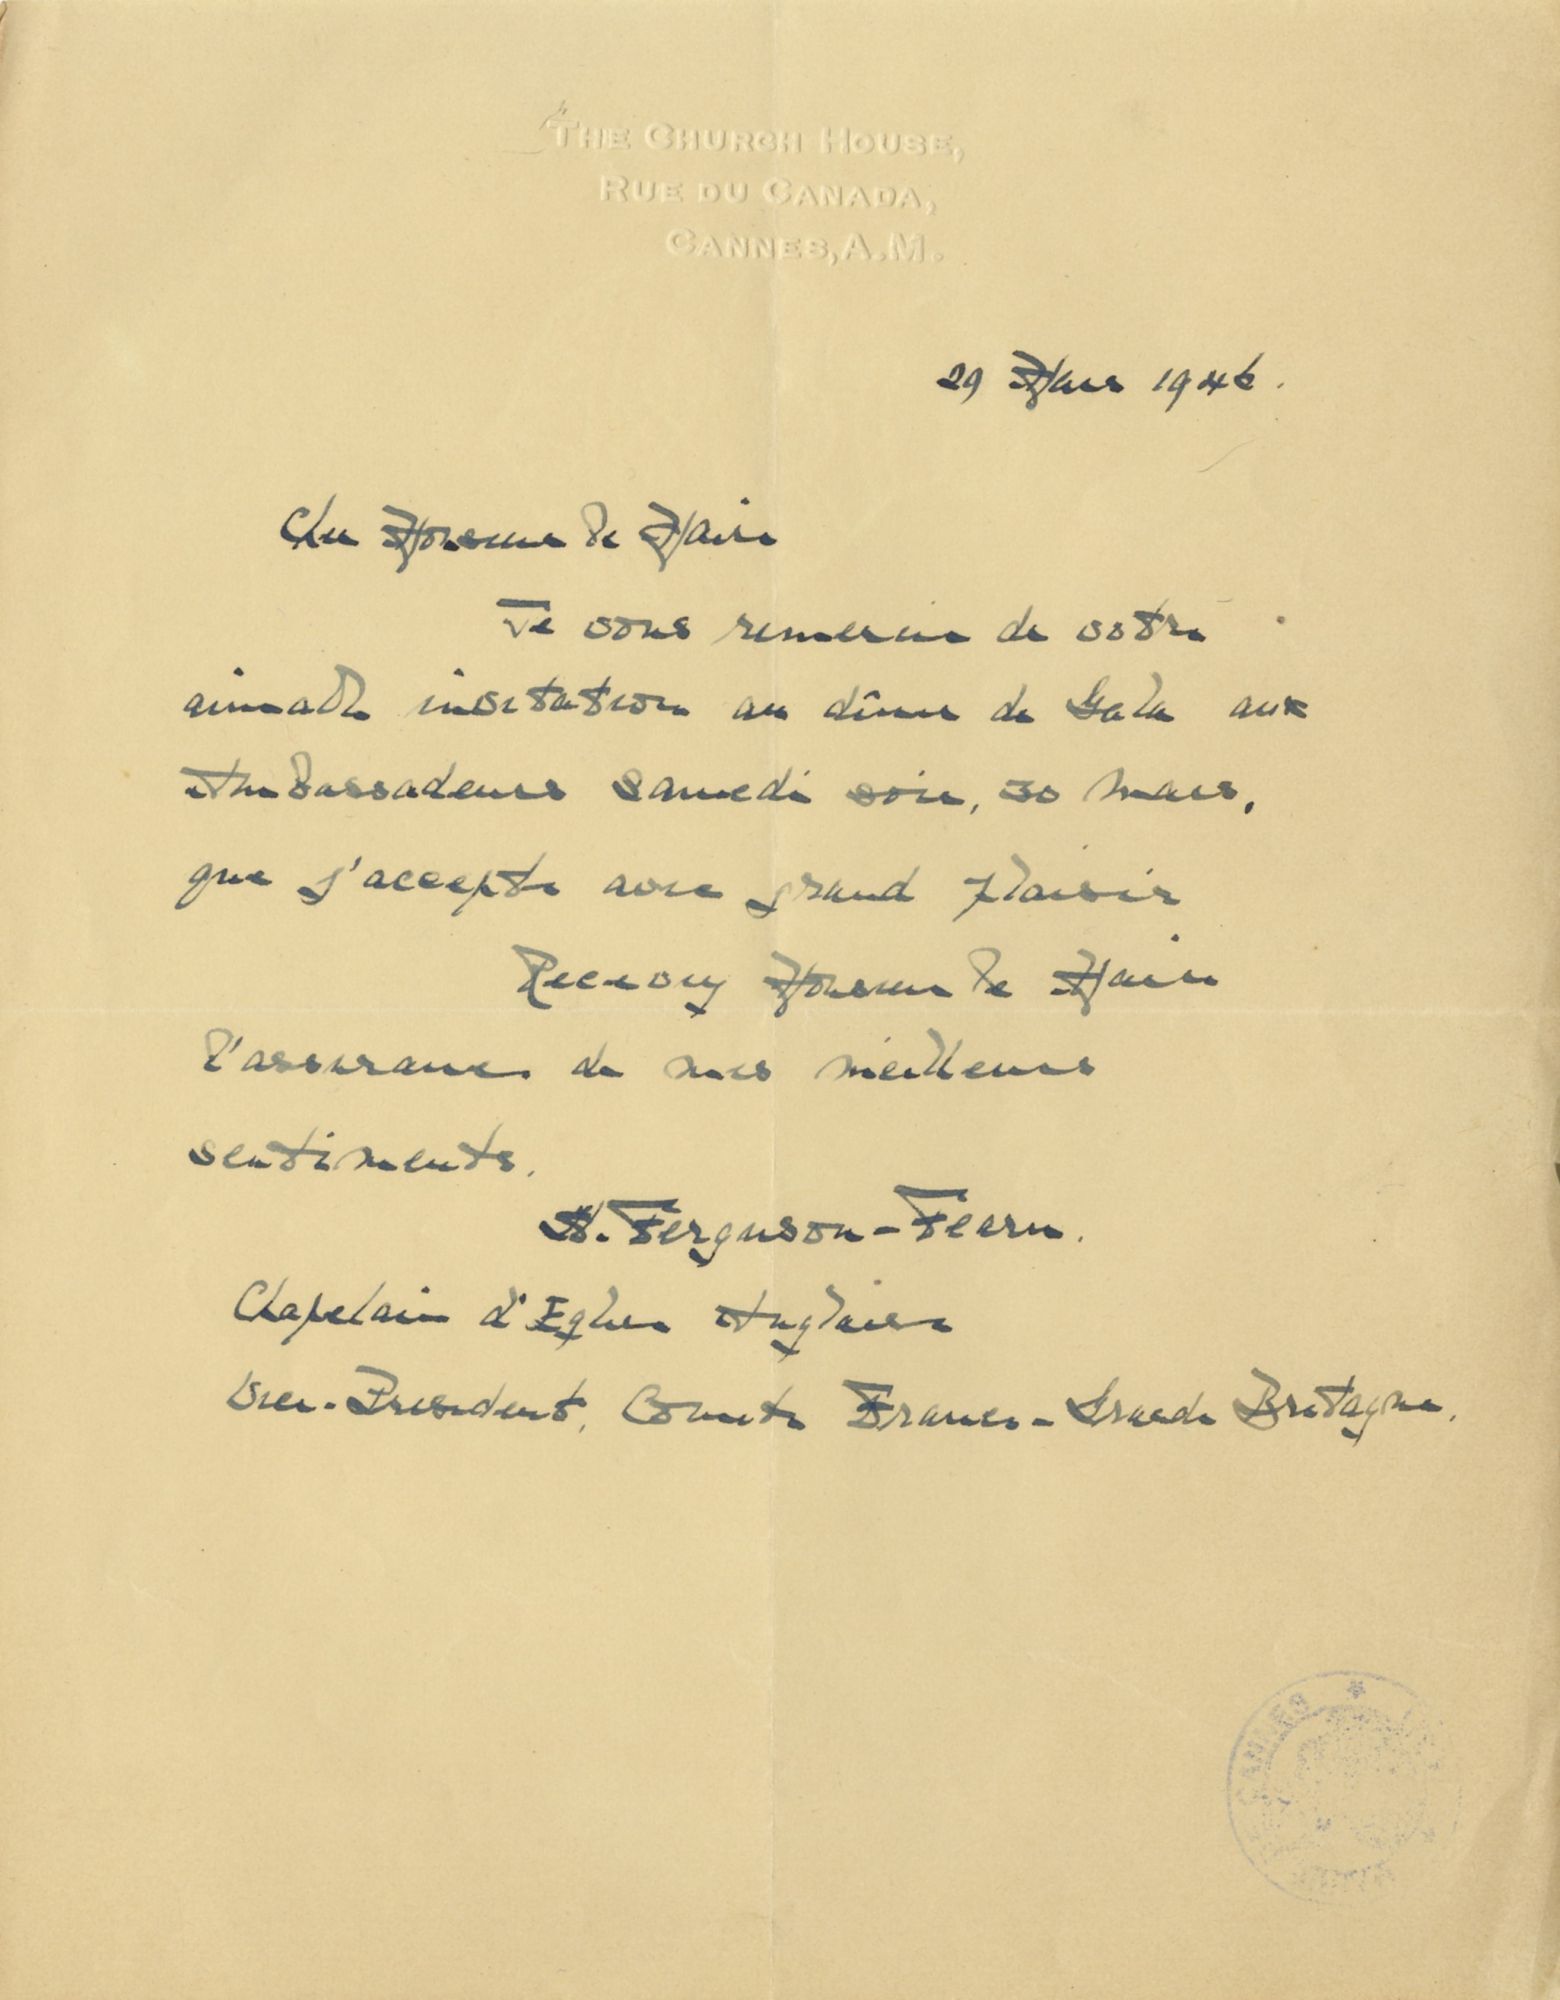 THE CHURCH HOUSE,
RUE DU CANADA,
CANNES, A.M.
29 Mars 1946.
Cher Monsieur le Maire
Je vous remercie de votre
aimable invitation au dîner de Gala aux
Ambassadeurs Samedi soir, 30 mars,
que j'accepte avec grand plaisir
Recevez Monsieur le Maire
l'assurance de mes meilleurs
sentiments.
Ferguson-Fearn.
Chapelain d'Eglise Anglaise
Vice-President, Comite France-Grande Bretagne.
CANNES